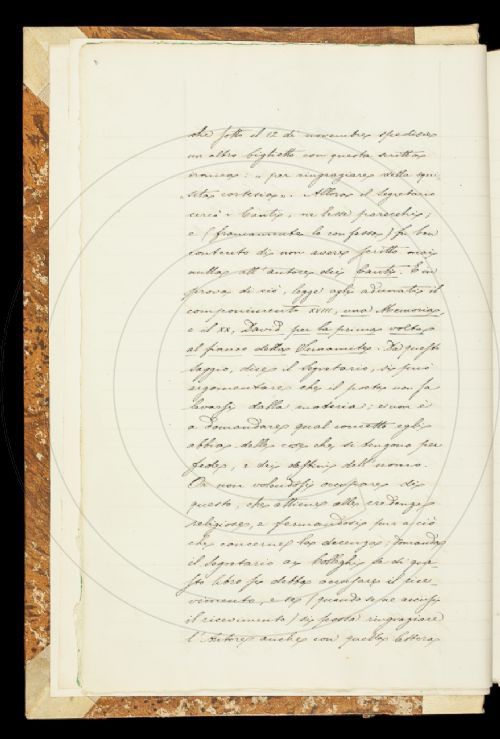 che sotto il 12 di novembre spedisce
un altro biglietto con questa scritta
ironica: « per ringraziare della squi-
sita cortesia». Allora il Segretario
cercò i Canti, ne lesse parecchi;
e (francamente lo confessa) fu ben
contento di non avere scritto mai
nulla all' autore dei Canti. E in
prova di ciò, legge agli adunati il
componimento XVIII, una Memoria
e il XX, David per la prima volta
al fianco della Sunamite. Da questo
saggio, dice il Segretario, si può
argomentare che il poeta non sa
levarsi dalla materia; e non è
a domandare qual concetto egli
abbia delle cose che si tengono per
fede, e dei destini dell' uomo.
Or non volendosi occupare di
questo, che attiene alle credenze
religiose, e fermandosi pur a ciò
che concerne la decenza; domanda
il Segretario ai Colleghi se di que-
sto libro si debba accusare il rice-
vimento, e se (quando se ne accusi
il ricevimento) si possa ringraziare
l' Autore anche con quella lettera